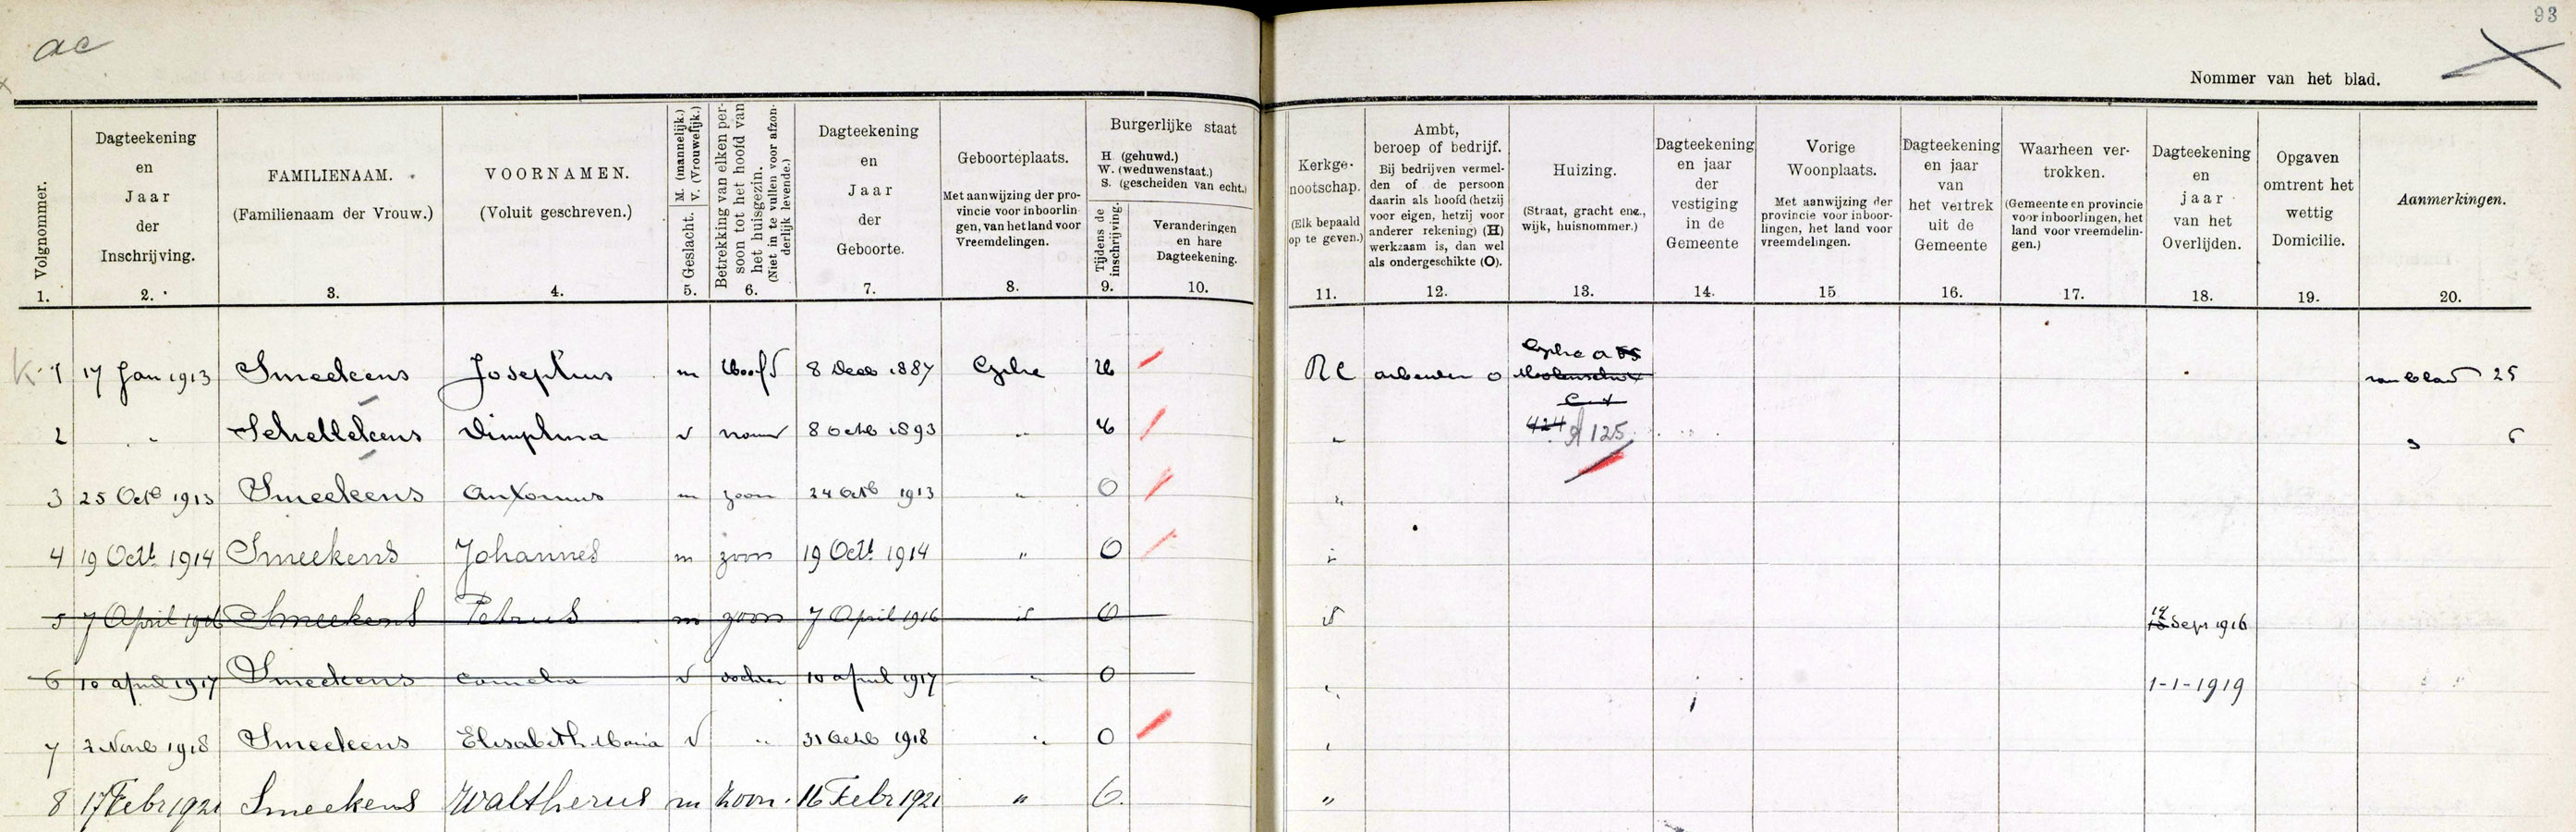 ac
93
Nommer van het blad.
Volgnommer.
1.
Dagteekening
en
Jaar
der
Inschrijving.
2.
FAMILIENAAM.
(Familienaam der Vrouw.)
3.
VOORNAMEN.
(Voluit geschreven.)
4.
M. (mannelijk.)
V. (Vrouwelijk.)
Geslacht.
5.
Betrekking van elken per-
soon tot het hoofd van
het huisgezin.
(Niet in te vullen voor afzon-
derlijk levende.)
6.
Dagteekening
en
Jaar
der
Geboorte.
7.
Geboorteplaats.
Met aanwijzing der pro-
vincie voor inboorlin
gen, van het land voor
Vreemdelingen.
8.
Burgerlijke staat
H. (gehuwd.)
W. (weduwenstaat.)
S. (gescheiden van echt.)
Tijdens de
inschrijving.
9.
Veranderingen
en hare
Dagteekening.
10.
Kerkge-
nootschap.
(Elk bepaald
op te geven.)
11.
Ambt,
beroep of bedrijf.
Bij bedrijven vermel-
den of de persoon
daarin als hoofd (hetzij
voor eigen, hetzij voor
anderer rekening) (H)
werkzaam is, dan wel
als ondergeschikte (O).
12.
Huizing.
(Straat, gracht enz.,
wijk, huisnommer.)
13.
Dagteekening
en jaar
der
vestiging
in de
Gemeente
14.
Vorige
Woonplaats.
Met aanwijzing der
provincie voor inboor-
lingen, het land voor
vreemdelingen.
15
Dagteekening
en jaar
van
het vertrek
uit de
Gemeente
16.
Waarheen ver-
trokken.
(Gemeente en provincie
voor inboorlingen, het
land voor vreemdelin-
gen.)
17.
Dagteekening
en
jaar
van het
Overlijden.
18.
Opgaven
omtrent het
wettig
Domicilie.
19.
Aanmerkingen.
20.
K 1 17 Jan 1913 Smeekens Josephus m Hoofd 8 Dec 1887 H RC arbeider O van blad 25
2 " Schellekens Dimphna v vrouw 8 Octb 1893 " H " 424 A 125 " 6
3 25 Octb 1913 Smeekens Antonius m zoon 24 Octb 1913 " O "
4 19 Octb 1914 Smeekens Johannes m zoon 19 Octb 1914 " O "
5 7 April 1916 Smeekens Petrus m zoon 7 April 1916 id O id Sept 1916
6 10 april 1917 Smeekens Cornelia v dochter 10 april 1917 " O " 1-1-1919
7 2 Novb 1918 Smeekens Elisabeth Maria v " 31 Octb 1918 " O "
8 17 Febr 1921 Smeekens Waltherus m zoon. 16 Febr 1921 " O. "